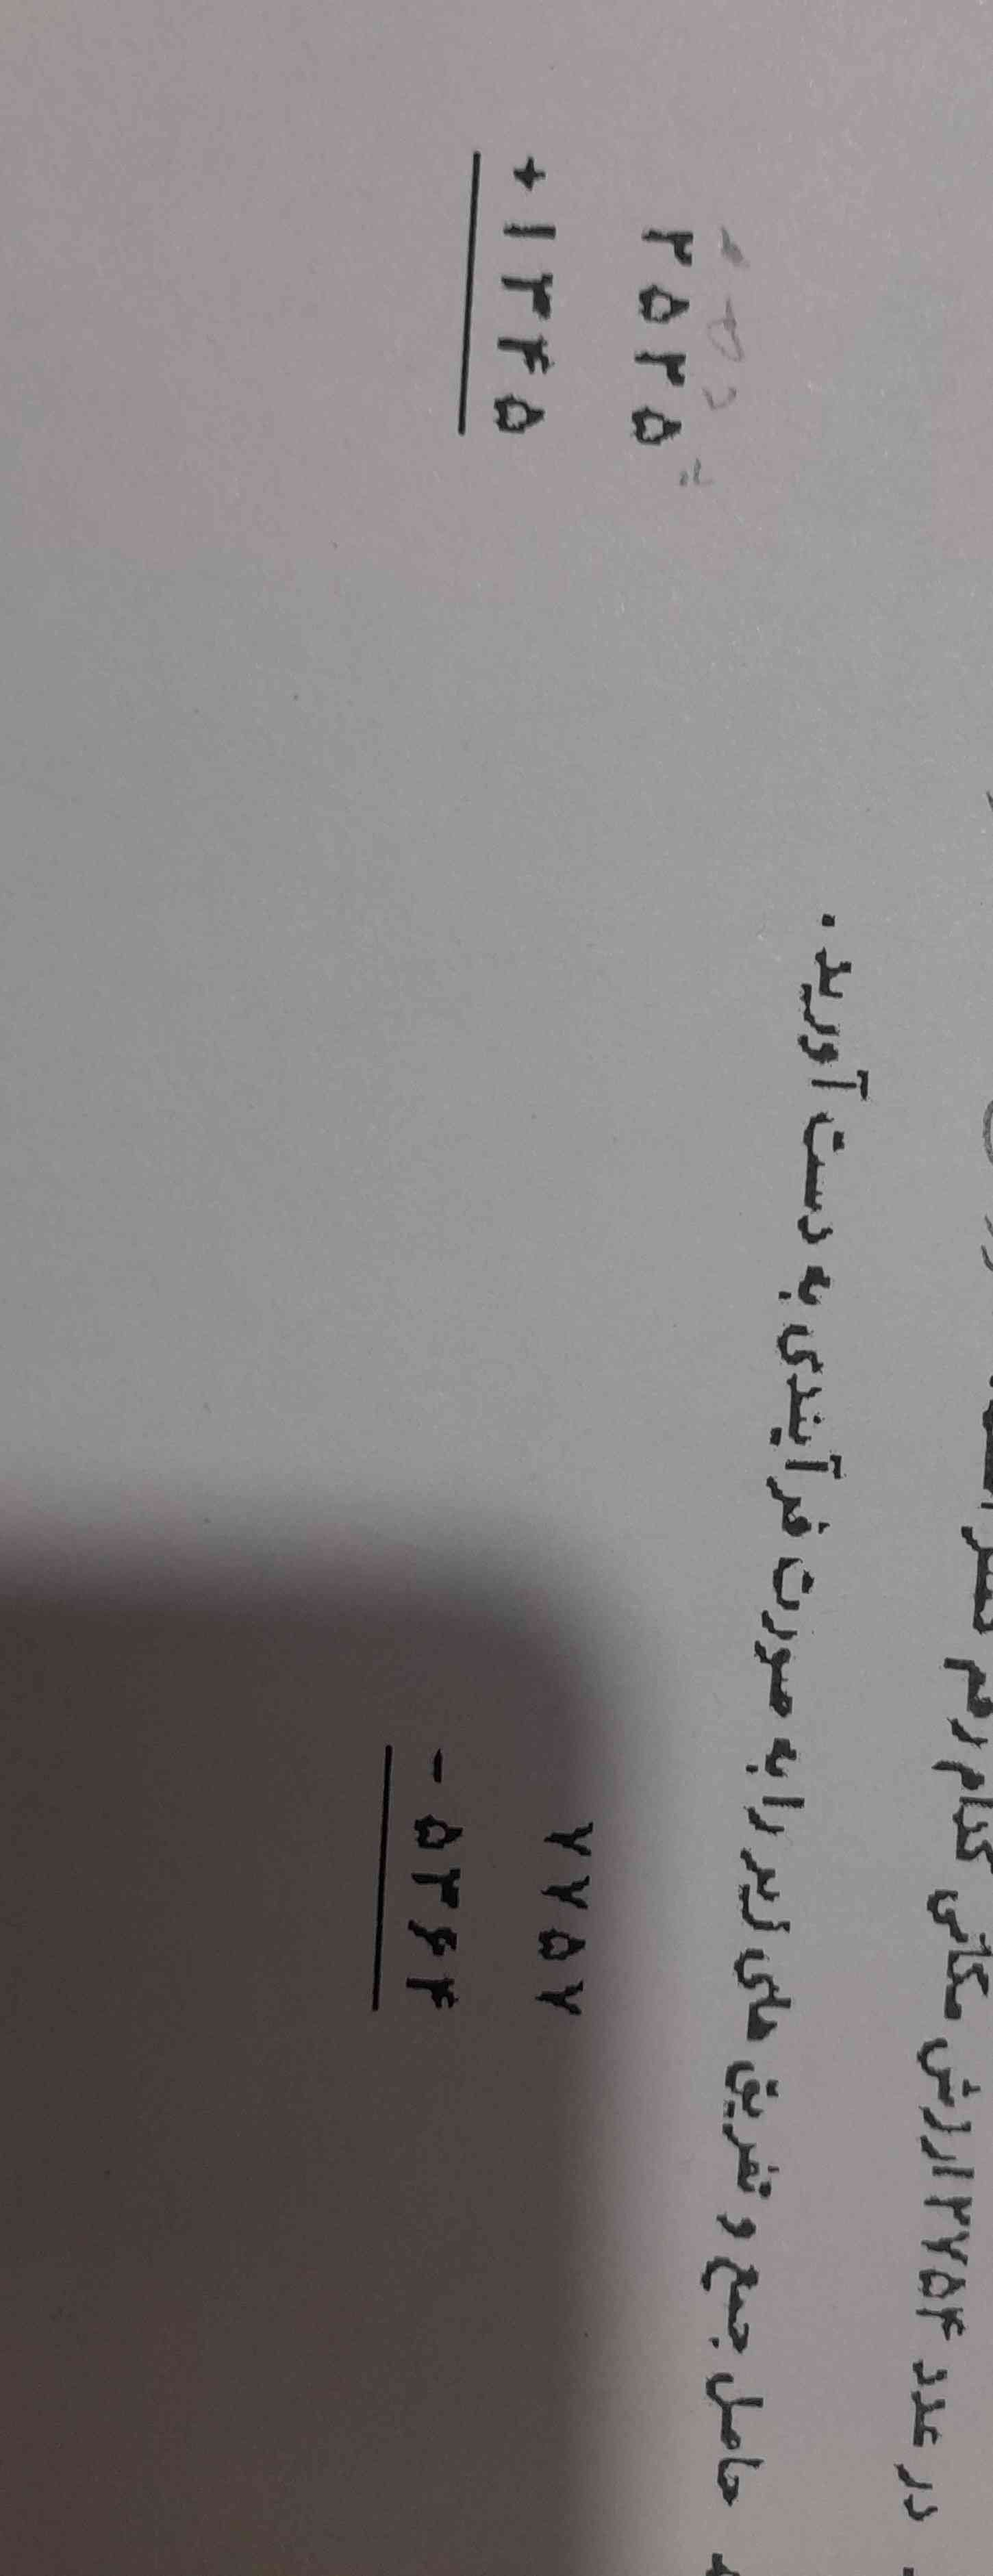 در عدد ۲۷۵۴ ارزش مکانی کدام رقم
حاصل جمع و تفریق های زیر را به صورت فرآیندی به دست آورید .
۷۷۵۷ ۲۵۲۵
- ۵۳۶۴ + ۱۳۴۵